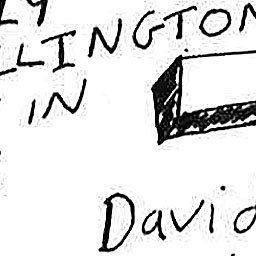 LY
LLINGTON
IN
David